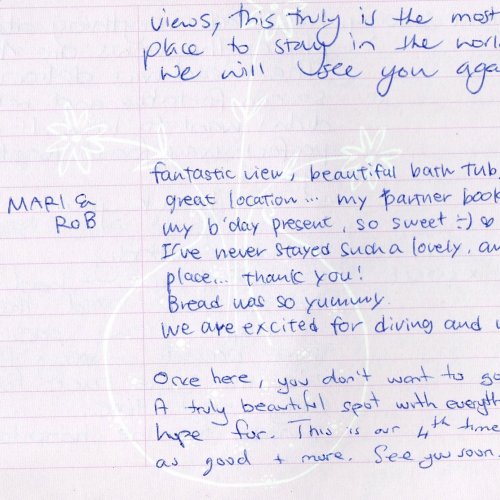 views, this truly is the most
place to stay in the worl
we will see you aga
fantastic view, beautiful bath tub,
great location... my partner book
MARI &
ROB
my b'day present, so sweet :-) ♡
I've never stayed such a lovely, am
place... thank you!
Bread was so yummy.
we are excited for diving and w
Once here, you don't want to go
A truly beautiful spot with everyth
hope for. This is our 4th time
as good + more. See you soon.